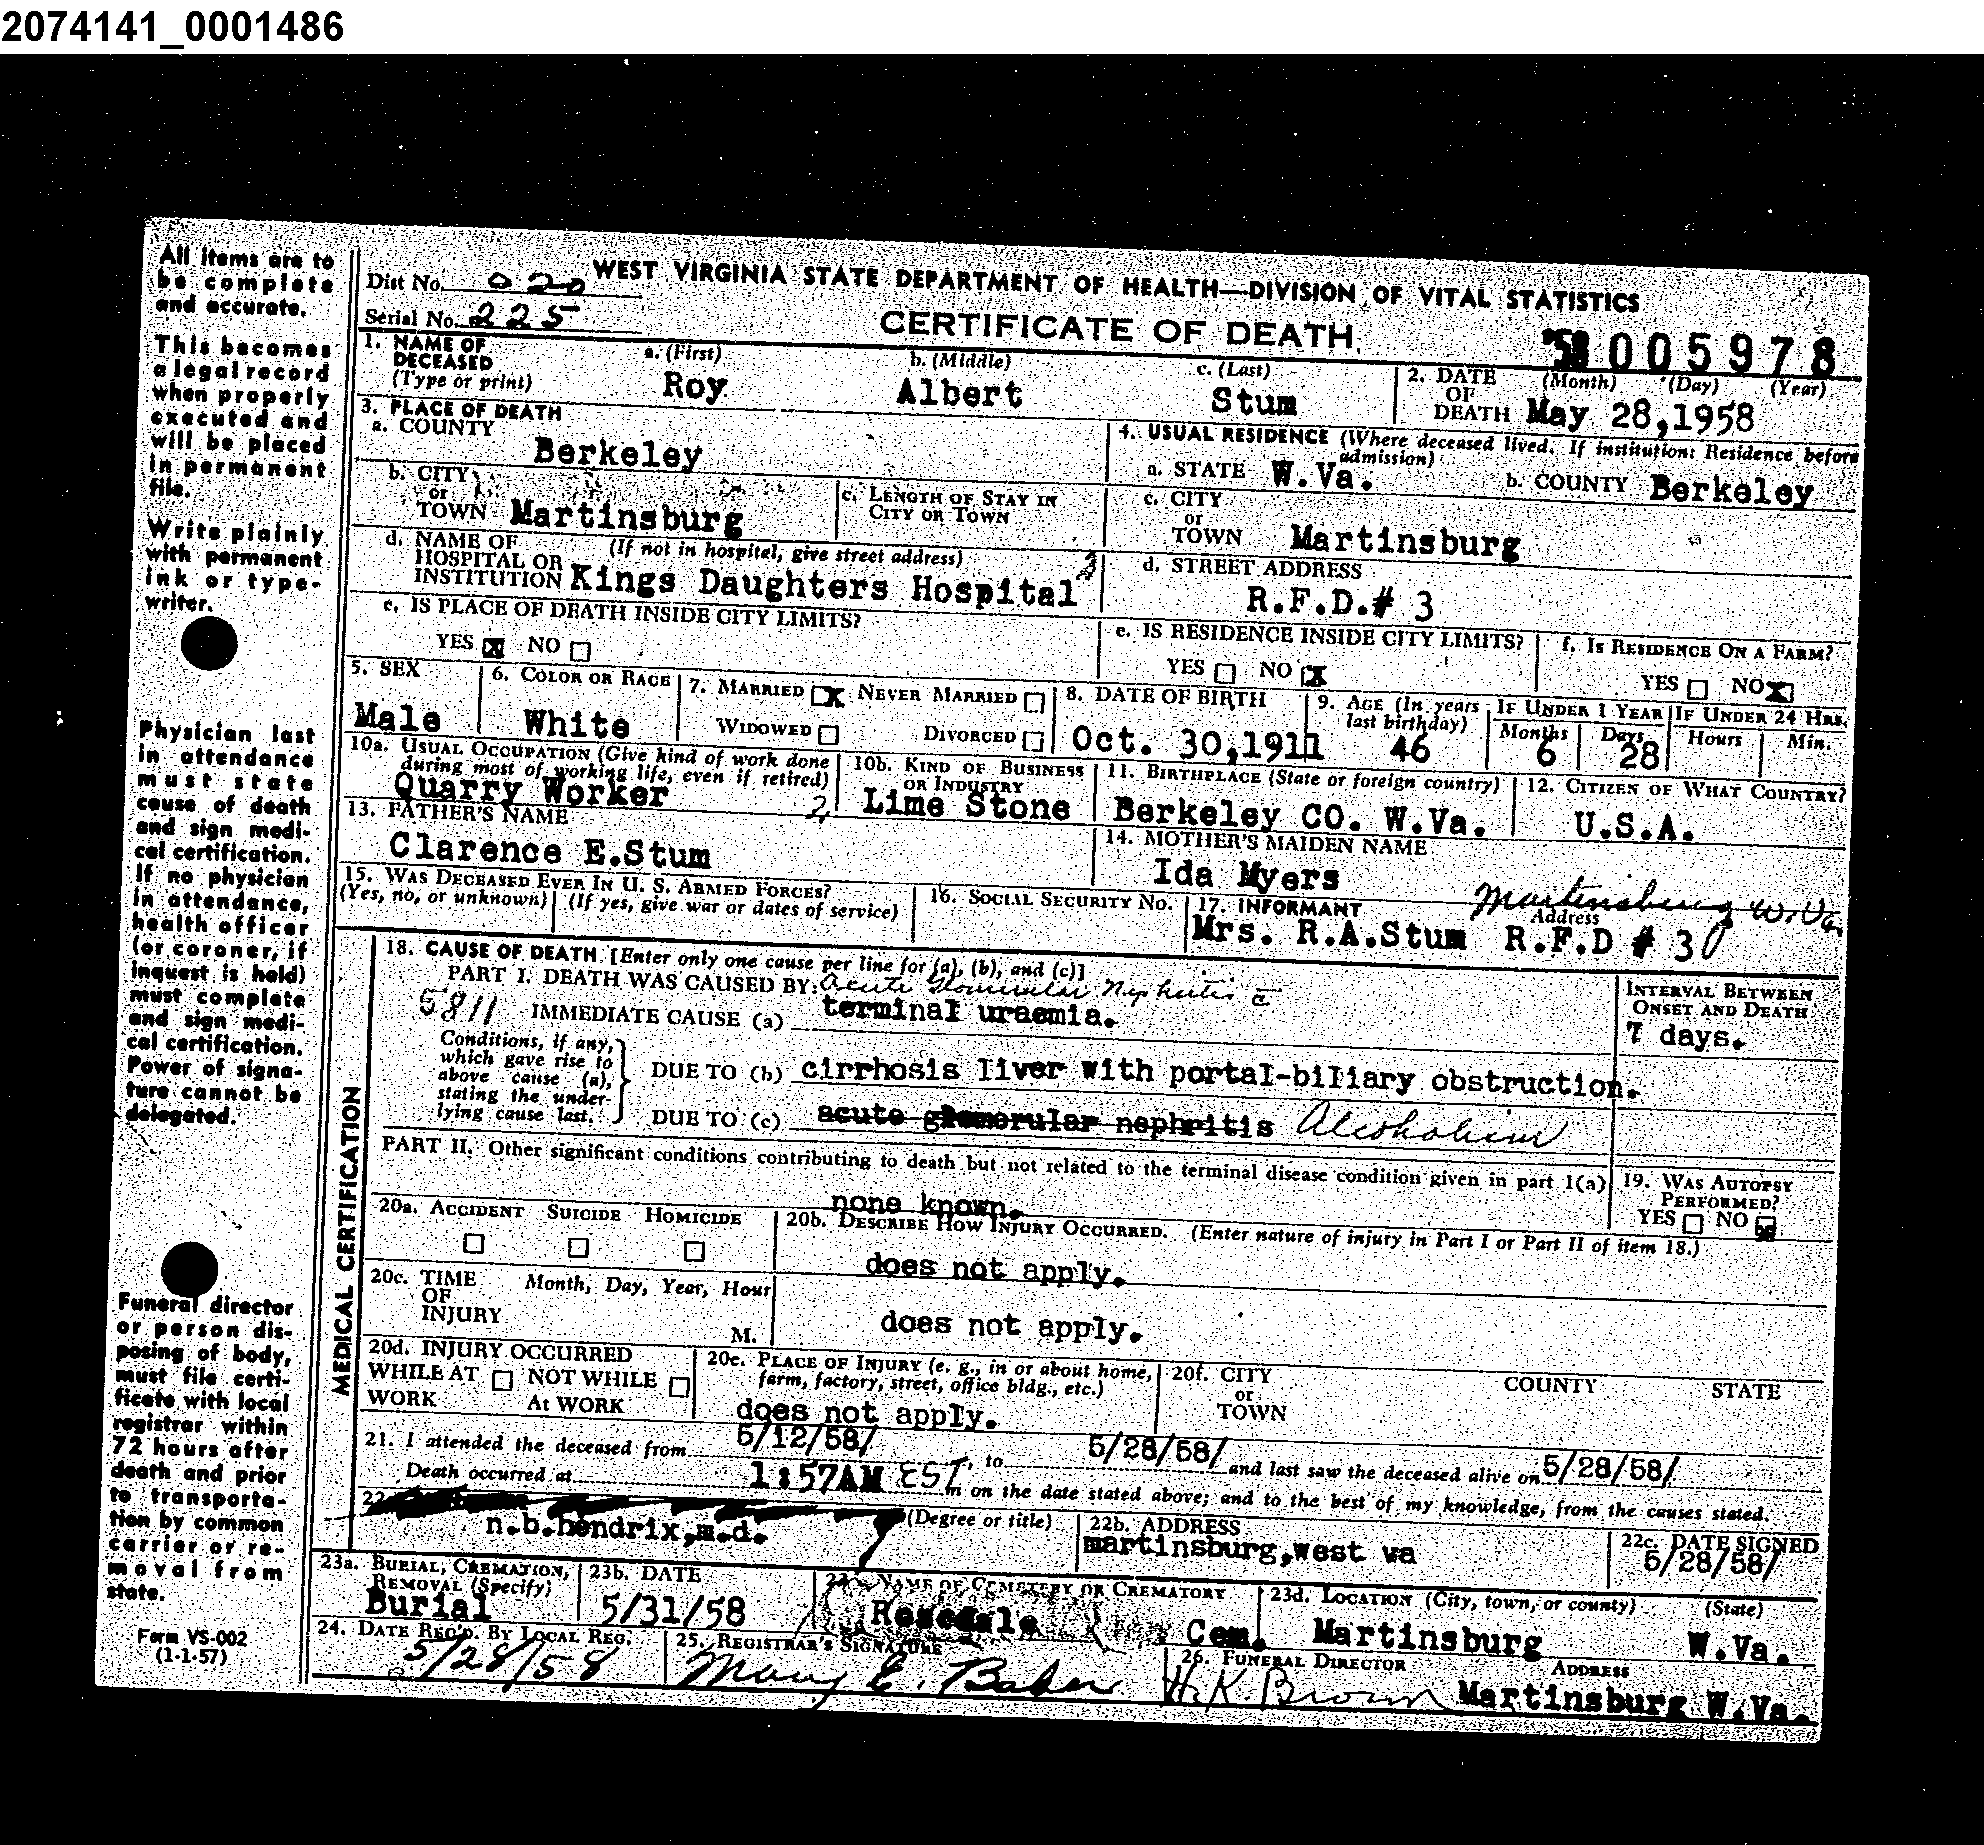 2074141_0001486
All items are to
be complete
and accurate.
This becomes
a legal record
when properly
executed and
will be placed
in permanent
file.
Write plainly
with permanent
ink or type-
writer.
Physician last
in attendance
must state
cause of death
and sign medi-
cal certification.
If no physician
in attendance,
health officer
(or coroner, if
inquest is held)
must complete
and sign medi-
cal certification.
Power of signa-
ture cannot be
delegated.
Funeral director
or person dis-
posing of body,
must file certi-
ficate with local
registrar within
72 hours after
death and prior
to transporta-
tion by common
carrier or re-
moval from
state.
Form VS-002
(1-1-57)
Dist No. 020 WEST VIRGINIA STATE DEPARTMENT OF HEALTH—DIVISION OF VITAL STATISTICS
Serial No. 225 CERTIFICATE OF DEATH
58 005978
1. NAME OF DECEASED (Type or print) a. (First) b. (Middle) c. (Last)
Roy Albert Stum
2. DATE OF DEATH (Month) (Day) (Year)
May 28,1958
3. PLACE OF DEATH
a. COUNTY Berkeley
4. USUAL RESIDENCE (Where deceased lived. If institution: Residence before admission)
a. STATE W.Va. b. COUNTY Berkeley
b. CITY or TOWN Martinsburg
c. LENGTH OF STAY IN CITY OR TOWN
c. CITY or TOWN Martinsburg
d. NAME OF HOSPITAL OR INSTITUTION (If not in hospital, give street address)
Kings Daughters Hospital 3
d. STREET ADDRESS
R.F.D.# 3
e. IS PLACE OF DEATH INSIDE CITY LIMITS?
YES X NO
e. IS RESIDENCE INSIDE CITY LIMITS?
YES NO X
f. IS RESIDENCE ON A FARM?
YES NO X
5. SEX
Male
6. COLOR OR RACE
White
7. MARRIED X NEVER MARRIED
WIDOWED DIVORCED
8. DATE OF BIRTH
Oct. 30,1911
9. AGE (In years last birthday)
46
IF UNDER 1 YEAR
Months Days
6 28
IF UNDER 24 HRS.
Hours Min.
10a. USUAL OCCUPATION (Give kind of work done during most of working life, even if retired)
Quarry Worker 2
10b. KIND OF BUSINESS OR INDUSTRY
Lime Stone
11. BIRTHPLACE (State or foreign country)
Berkeley CO. W.Va.
12. CITIZEN OF WHAT COUNTRY?
U.S.A.
13. FATHER'S NAME
Clarence E.Stum
14. MOTHER'S MAIDEN NAME
Ida Myers
15. WAS DECEASED EVER IN U. S. ARMED FORCES?
(Yes, no, or unknown) (If yes, give war or dates of service)
16. SOCIAL SECURITY No.
17. INFORMANT Address
Martinsburg W.Va.
Mrs. R.A.Stum R.F.D # 3
MEDICAL CERTIFICATION
18. CAUSE OF DEATH [Enter only one cause per line for (a), (b), and (c)]
PART I. DEATH WAS CAUSED BY: Acute Nephritis c̄
5811 IMMEDIATE CAUSE (a) terminal uraemia.
INTERVAL BETWEEN ONSET AND DEATH
7 days.
Conditions, if any, which gave rise to above cause (a), stating the under-lying cause last.
DUE TO (b) cirrhosis liver with portal-biliary obstruction.
DUE TO (c) acute glomerular nephritis Alcoholism
PART II. Other significant conditions contributing to death but not related to the terminal disease condition given in part I(a)
none known.
19. WAS AUTOPSY PERFORMED?
YES NO X
20a. ACCIDENT SUICIDE HOMICIDE
20b. DESCRIBE HOW INJURY OCCURRED. (Enter nature of injury in Part I or Part II of item 18.)
does not apply.
20c. TIME OF INJURY Month, Day, Year, Hour
M.
does not apply.
20d. INJURY OCCURRED
WHILE AT WORK NOT WHILE At WORK
20e. PLACE OF INJURY (e. g., in or about home, farm, factory, street, office bldg., etc.)
does not apply.
20f. CITY or TOWN COUNTY STATE
21. I attended the deceased from 5/12/58/, to 5/28/58/ and last saw the deceased alive on 5/28/58/
Death occurred at 1:57AM EST m on the date stated above; and to the best of my knowledge, from the causes stated.
22
n.b.hendrix,m.d. (Degree or title)
22b. ADDRESS
martinsburg,west va
22c. DATE SIGNED
5/28/58/
23a. BURIAL, CREMATION, REMOVAL (Specify)
Burial
23b. DATE
5/31/58
23c. NAME OF CEMETERY OR CREMATORY
Rosedale Cem.
23d. LOCATION (City, town, or county) (State)
Martinsburg W.Va.
24. DATE REC'D. BY LOCAL REG.
5/28/58
25. REGISTRAR'S SIGNATURE
Mary E. Baker
26. FUNERAL DIRECTOR ADDRESS
H.K. Brown Martinsburg W.Va.